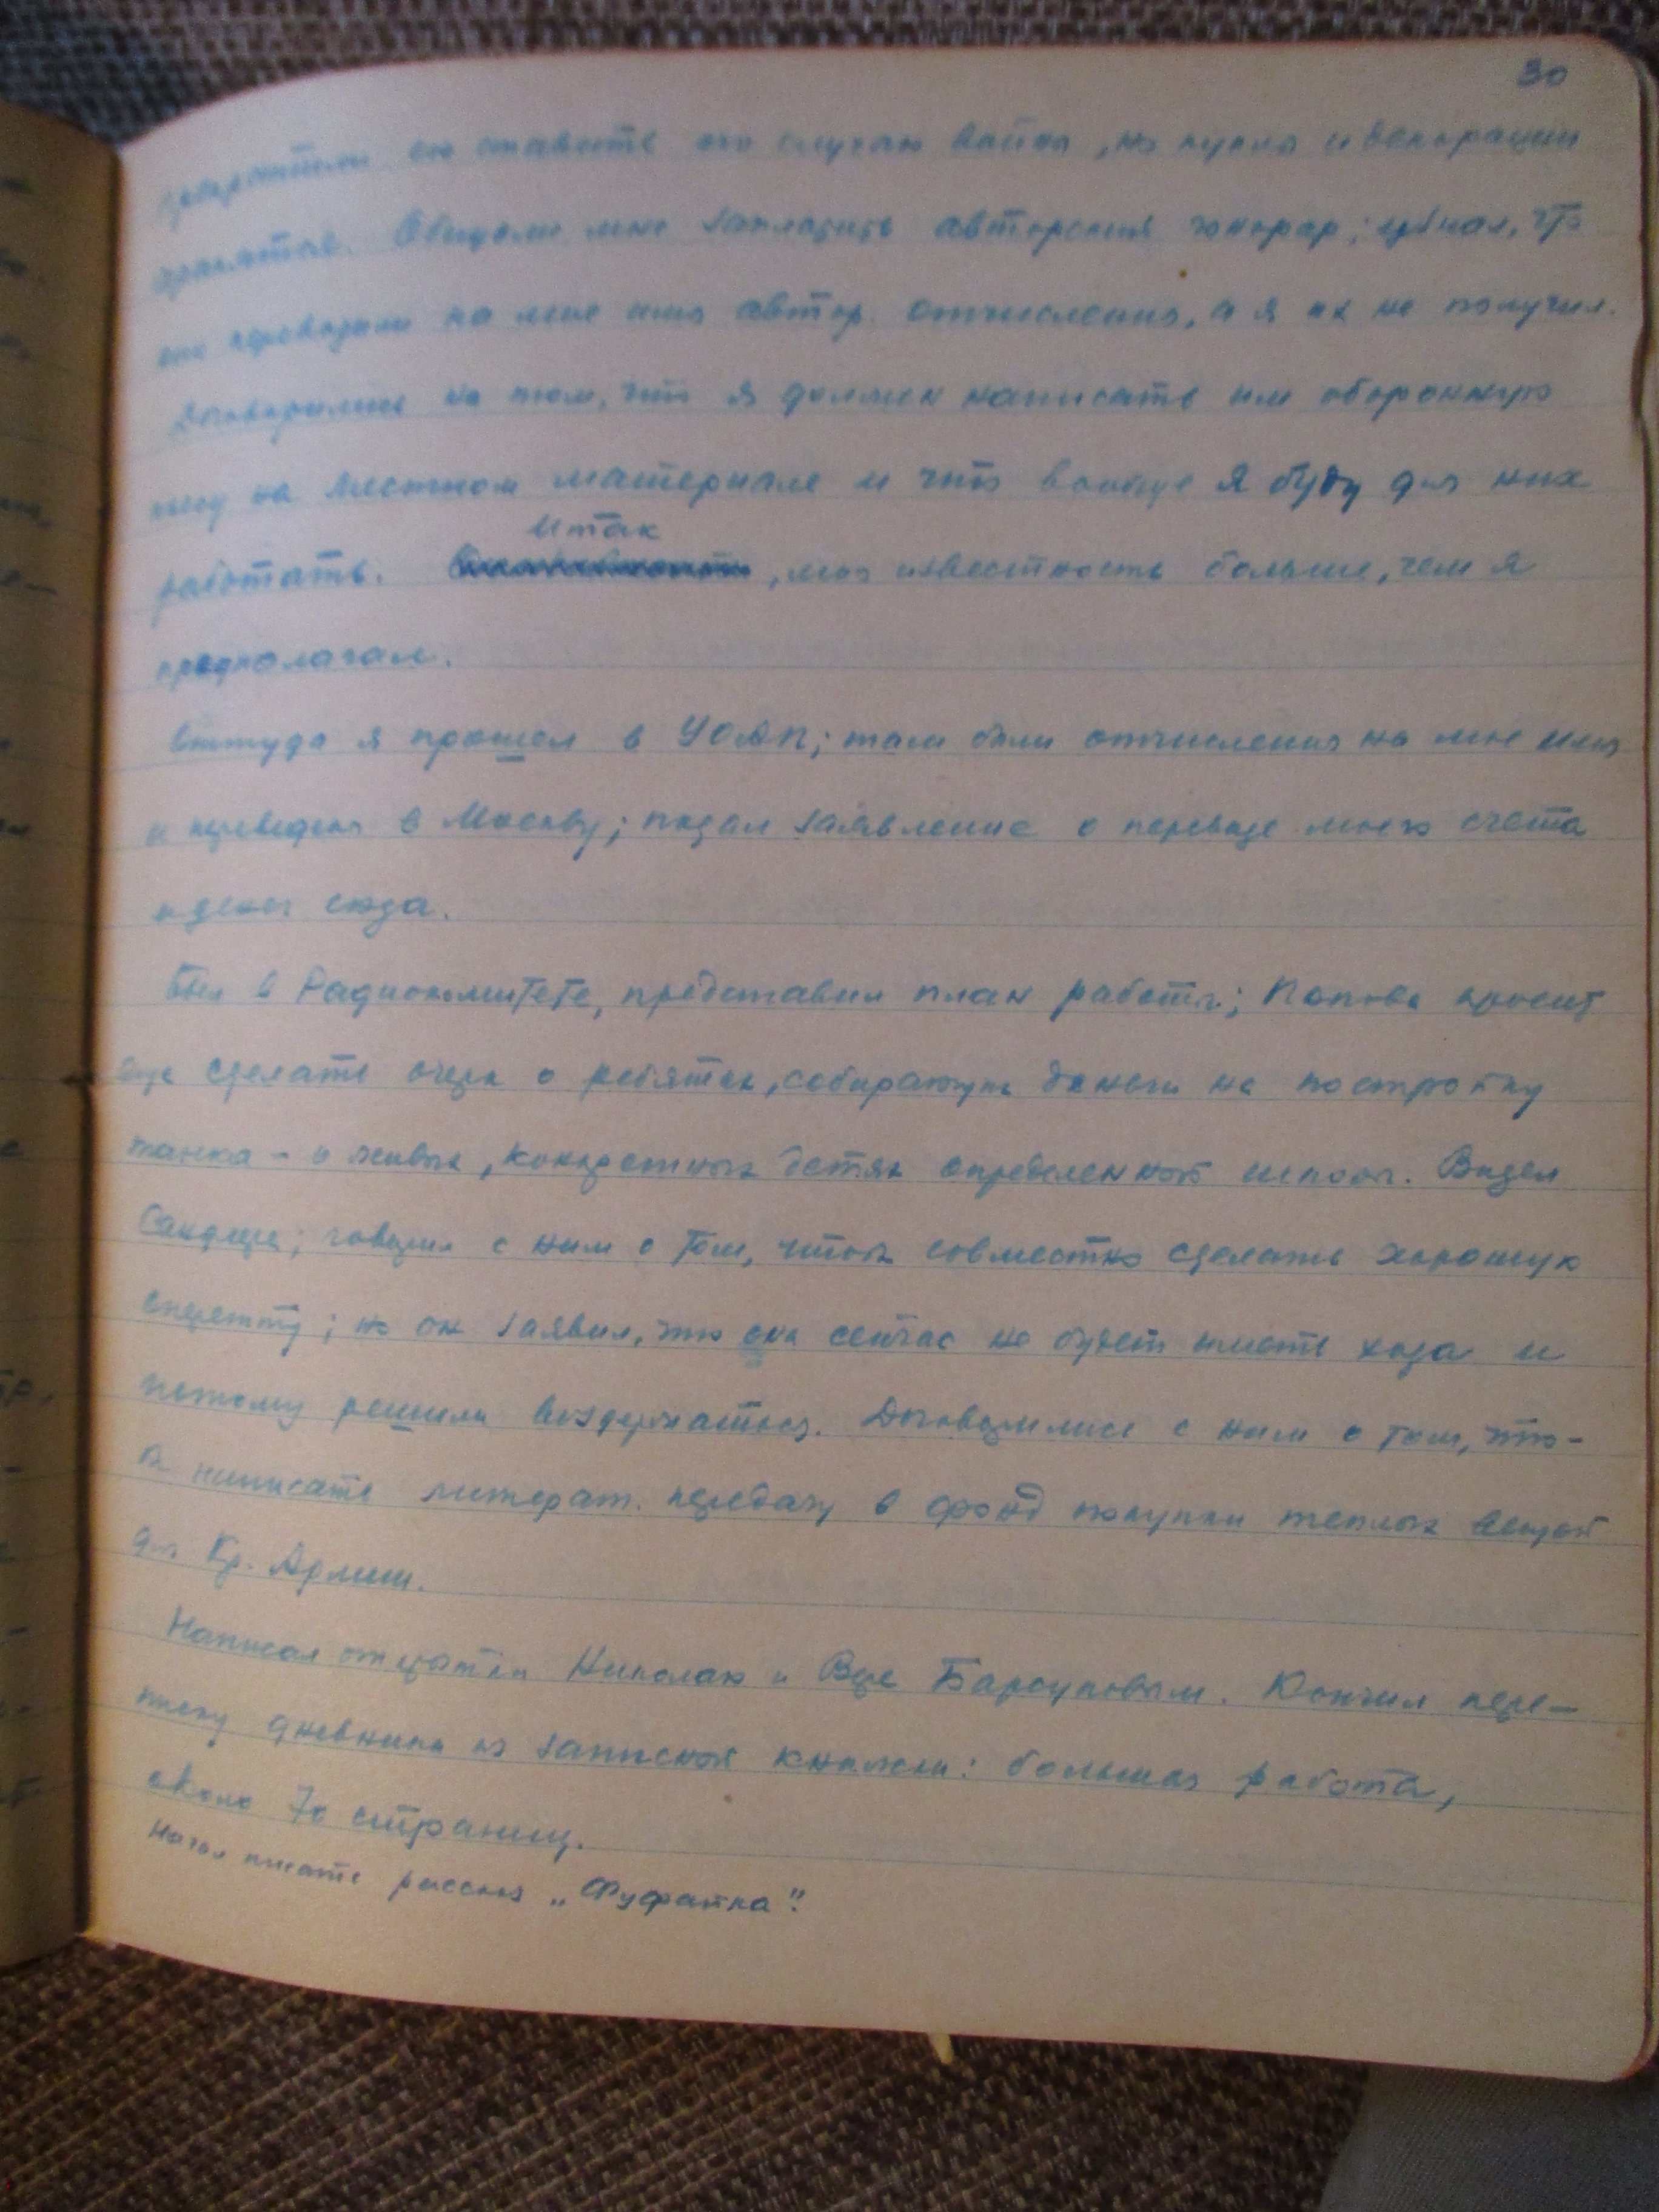 30
прекратили ея ставить по случаю войны, но куклы и декорации
хранятся. Обещали мне заплатить авторский гонорар; узнал, что
они переводили на мое имя автор. отчисления, а я их не получил.
Договорились на том, что я должен написать им оборонную
пьесу на местном материале и что вообще я буду для них
Итак
работать. , моя известность больше, чем я
предполагал.
Оттуда я прошел в УОАП; там были отчисления на мое имя
и переведены в Москву; подал заявление о переводе моего счета
и денег сюда.
Был в Радиокомитете, представил план работы; Попова просит
еще сделать очерк о ребятах, собирающих деньги на постройку
танка – о живых, конкретных детях определенной школы. Видел
говорил с ним о том, чтобы совместно сделать хорошую
оперетту; но он заявил, что она сейчас не будет иметь хода и
потому решили воздержаться. Договорились с ним о том, что-
бы написать литерат. передачу в фонд покупки теплых вещей
для Кр. Армии.
Написал открытки Николаю и Вере Барсуковым. Кончил пере-
писку дневника из записной книжки: большая работа,
около 70 страниц.
Начал писать рассказ „Фуфайка".